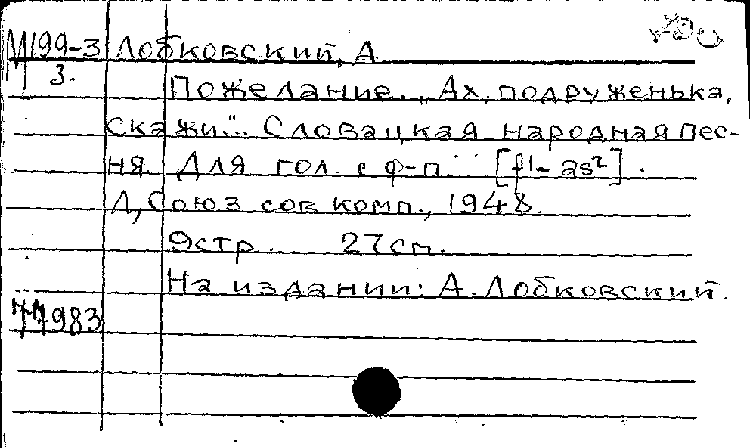 М199-3 Лобковский, А
3.
Пожелание. „Ах, подруженька,
скажи.." Словацкая народная пес-
ня. Для гол. с ф-п. [f¹-as²].
Л, Союз сов комп., 1948
9стр. 27см.
На издании: А. Лобковский.
77983